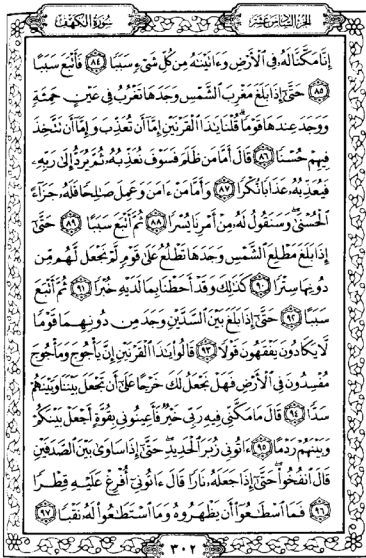 سورة الكهف
الجزء السادس عشر
إِنَّا مَكَّنَّا لَهُۥ فِى ٱلْأَرْضِ وَءَاتَيْنَٰهُ مِن كُلِّ شَىْءٍ سَبَبًا ٨٤ فَأَتْبَعَ سَبَبًا
٨٥ حَتَّىٰٓ إِذَا بَلَغَ مَغْرِبَ ٱلشَّمْسِ وَجَدَهَا تَغْرُبُ فِى عَيْنٍ حَمِئَةٍ
وَوَجَدَ عِندَهَا قَوْمًا قُلْنَا يَٰذَا ٱلْقَرْنَيْنِ إِمَّآ أَن تُعَذِّبَ وَإِمَّآ أَن تَتَّخِذَ
فِيهِمْ حُسْنًا ٨٦ قَالَ أَمَّا مَن ظَلَمَ فَسَوْفَ نُعَذِّبُهُۥ ثُمَّ يُرَدُّ إِلَىٰ رَبِّهِۦ
فَيُعَذِّبُهُۥ عَذَابًا نُّكْرًا ٨٧ وَأَمَّا مَنْ ءَامَنَ وَعَمِلَ صَٰلِحًا فَلَهُۥ جَزَآءً
ٱلْحُسْنَىٰ وَسَنَقُولُ لَهُۥ مِنْ أَمْرِنَا يُسْرًا ٨٨ ثُمَّ أَتْبَعَ سَبَبًا ٨٩ حَتَّىٰٓ
إِذَا بَلَغَ مَطْلِعَ ٱلشَّمْسِ وَجَدَهَا تَطْلُعُ عَلَىٰ قَوْمٍ لَّمْ نَجْعَل لَّهُم مِّن
دُونِهَا سِتْرًا ٩٠ كَذَٰلِكَ وَقَدْ أَحَطْنَا بِمَا لَدَيْهِ خُبْرًا ٩١ ثُمَّ أَتْبَعَ
سَبَبًا ٩٢ حَتَّىٰٓ إِذَا بَلَغَ بَيْنَ ٱلسَّدَّيْنِ وَجَدَ مِن دُونِهِمَا قَوْمًا
لَّا يَكَادُونَ يَفْقَهُونَ قَوْلًا ٩٣ قَالُوا۟ يَٰذَا ٱلْقَرْنَيْنِ إِنَّ يَأْجُوجَ وَمَأْجُوجَ
مُفْسِدُونَ فِى ٱلْأَرْضِ فَهَلْ نَجْعَلُ لَكَ خَرْجًا عَلَىٰٓ أَن تَجْعَلَ بَيْنَنَا وَبَيْنَهُمْ
سَدًّا ٩٤ قَالَ مَا مَكَّنِّى فِيهِ رَبِّى خَيْرٌ فَأَعِينُونِى بِقُوَّةٍ أَجْعَلْ بَيْنَكُمْ
وَبَيْنَهُمْ رَدْمًا ٩٥ ءَاتُونِى زُبَرَ ٱلْحَدِيدِ حَتَّىٰٓ إِذَا سَاوَىٰ بَيْنَ ٱلصَّدَفَيْنِ
قَالَ ٱنفُخُوا۟ حَتَّىٰٓ إِذَا جَعَلَهُۥ نَارًا قَالَ ءَاتُونِىٓ أُفْرِغْ عَلَيْهِ قِطْرًا
٩٦ فَمَا ٱسْطَٰعُوٓا۟ أَن يَظْهَرُوهُ وَمَا ٱسْتَطَٰعُوا۟ لَهُۥ نَقْبًا ٩٧
٣٠٢